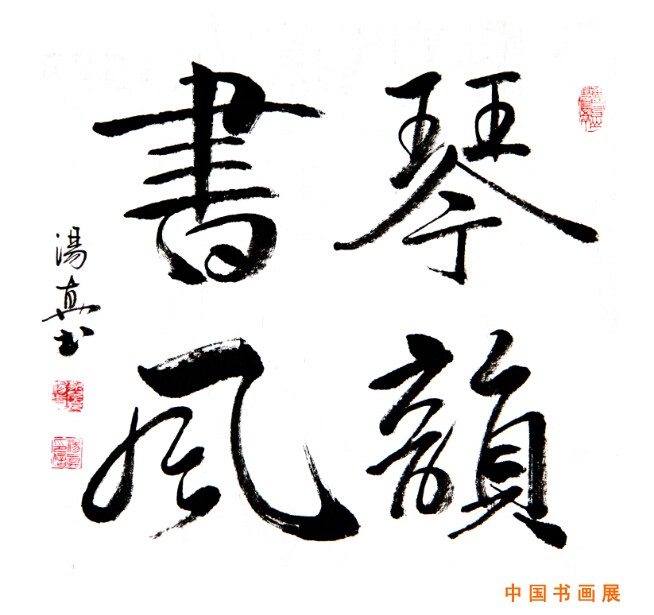 琴韻
書風
湯真书
中国书画展